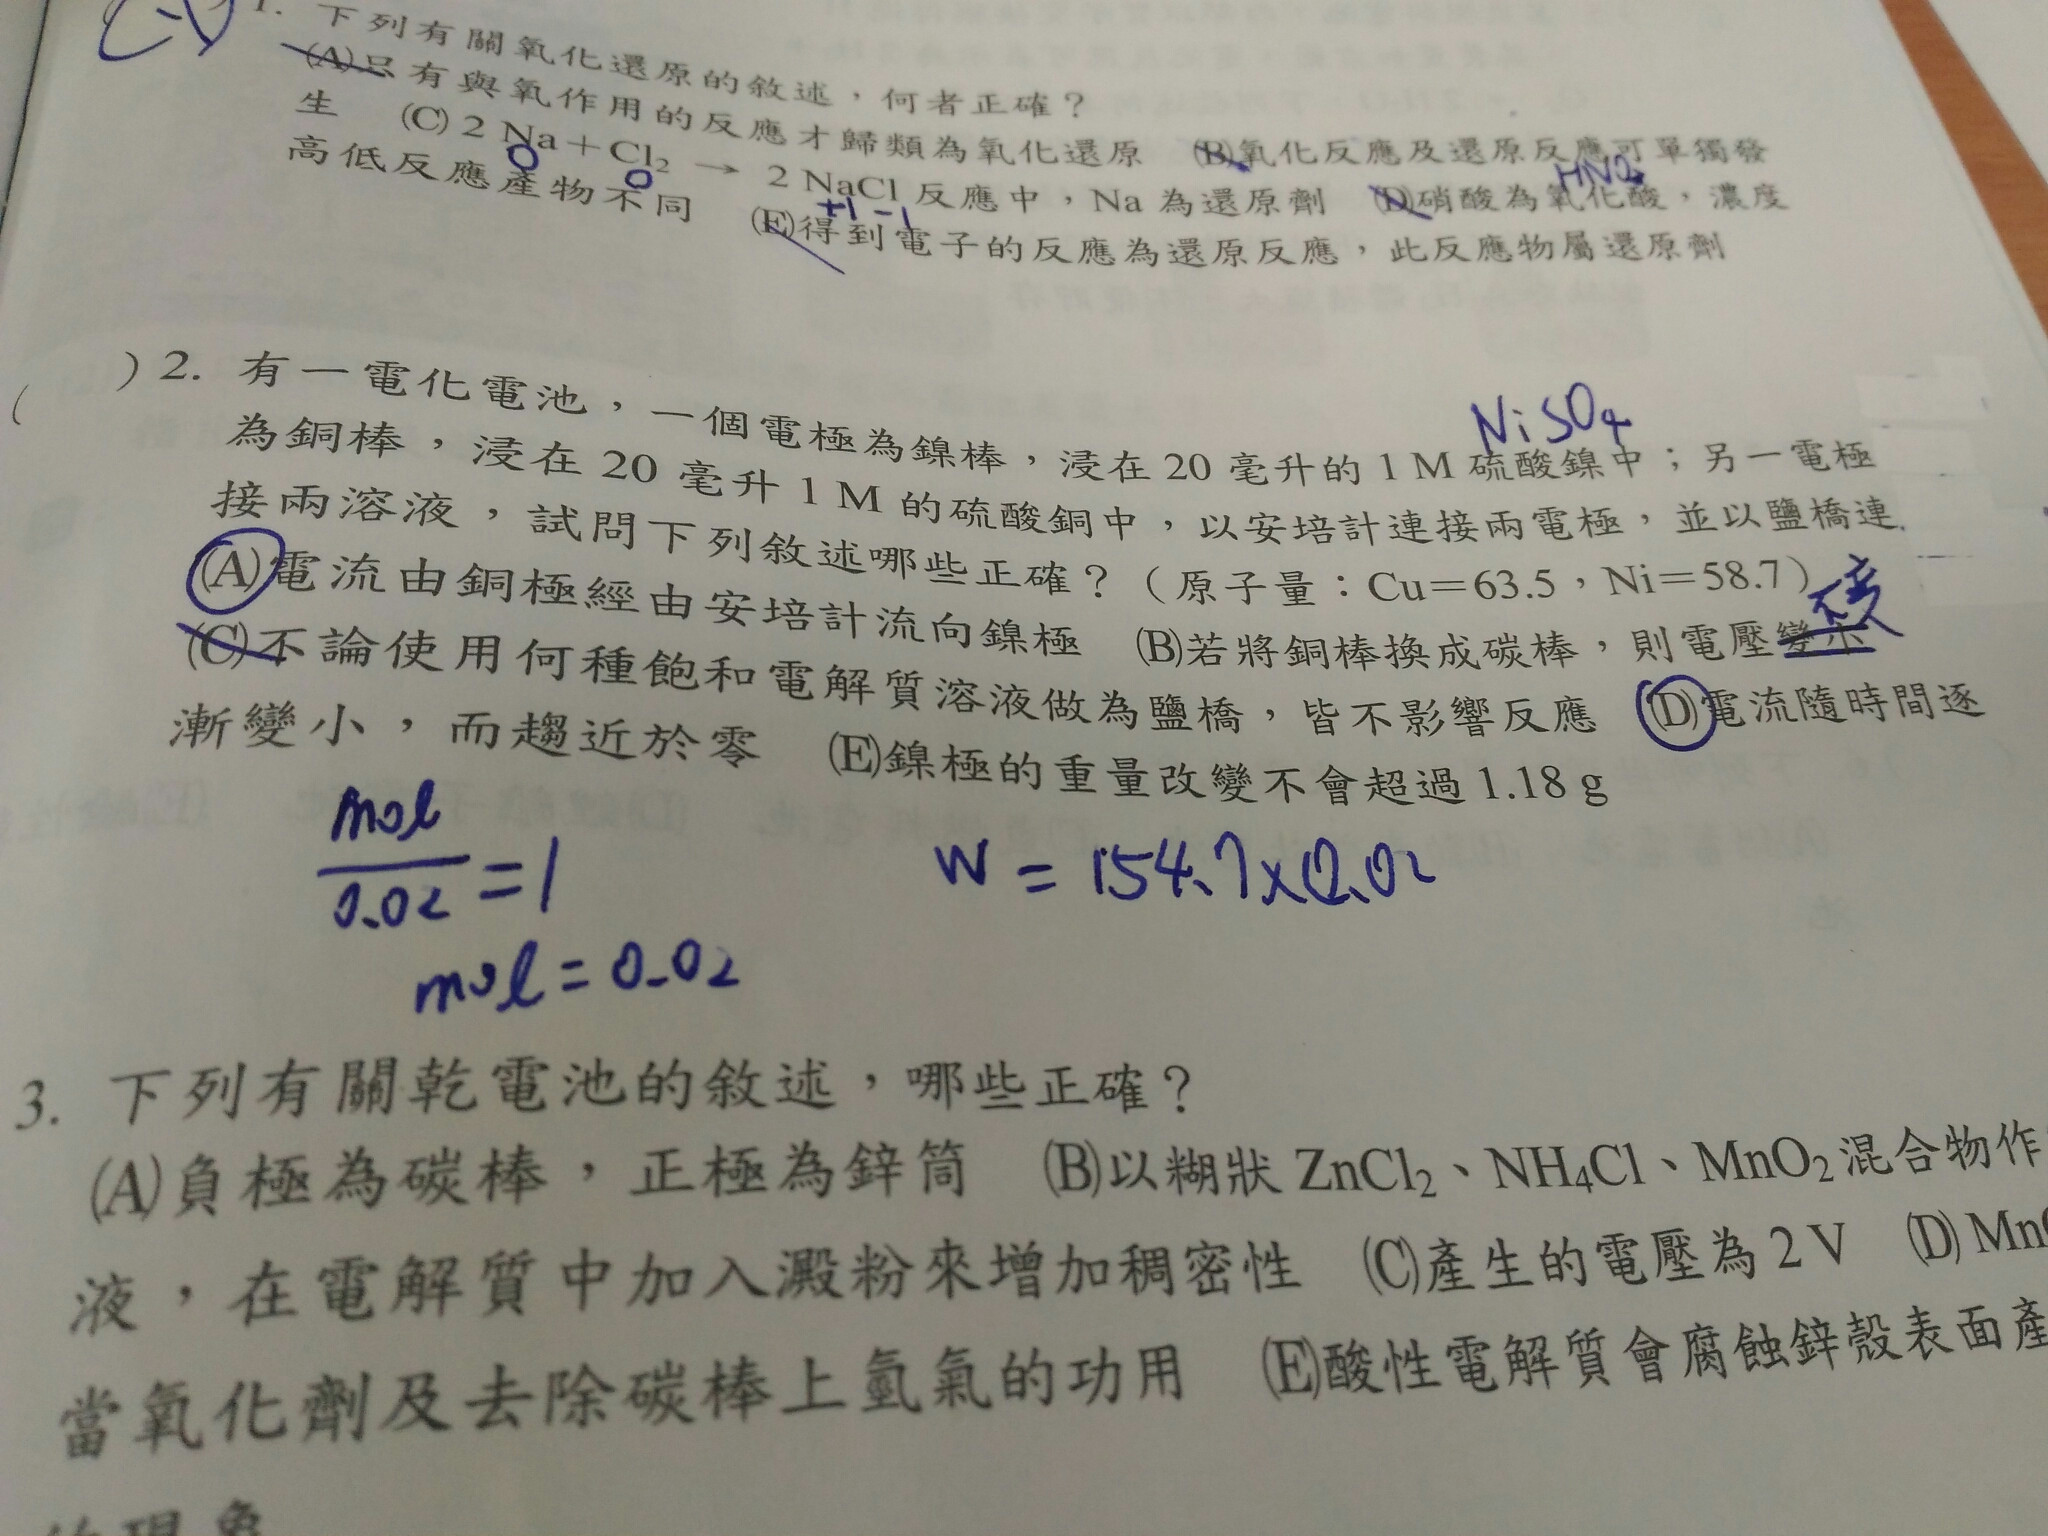 1. 下列有關氧化還原的敘述，何者正確？
(A)只有與氧作用的反應才歸類為氧化還原 (B)氧化反應及還原反應可單獨發
生 (C) 2 Na＋Cl₂ → 2 NaCl 反應中，Na 為還原劑 (D)硝酸為氧化酸，濃度
高低反應產物不同 (E)得到電子的反應為還原反應，此反應物屬還原劑
0 0 +1 -1
NiSO4
( ) 2. 有一電化電池，一個電極為鎳棒，浸在 20 毫升的 1 M 硫酸鎳中；另一電極
為銅棒，浸在 20 毫升 1 M 的硫酸銅中，以安培計連接兩電極，並以鹽橋連
接兩溶液，試問下列敘述哪些正確？（原子量：Cu＝63.5，Ni＝58.7）
(A)電流由銅極經由安培計流向鎳極 (B)若將銅棒換成碳棒，則電壓變小
不變
(C)不論使用何種飽和電解質溶液做為鹽橋，皆不影響反應 (D)電流隨時間逐
漸變小，而趨近於零 (E)鎳極的重量改變不會超過 1.18 g
mol/0.02 = 1
W = 154.7×0.02
mol = 0.02
3. 下列有關乾電池的敘述，哪些正確？
(A)負極為碳棒，正極為鋅筒 (B)以糊狀 ZnCl₂、NH₄Cl、MnO₂ 混合物作
液，在電解質中加入澱粉來增加稠密性 (C)產生的電壓為 2 V (D) Mn
當氧化劑及去除碳棒上氫氣的功用 (E)酸性電解質會腐蝕鋅殼表面產
的現象